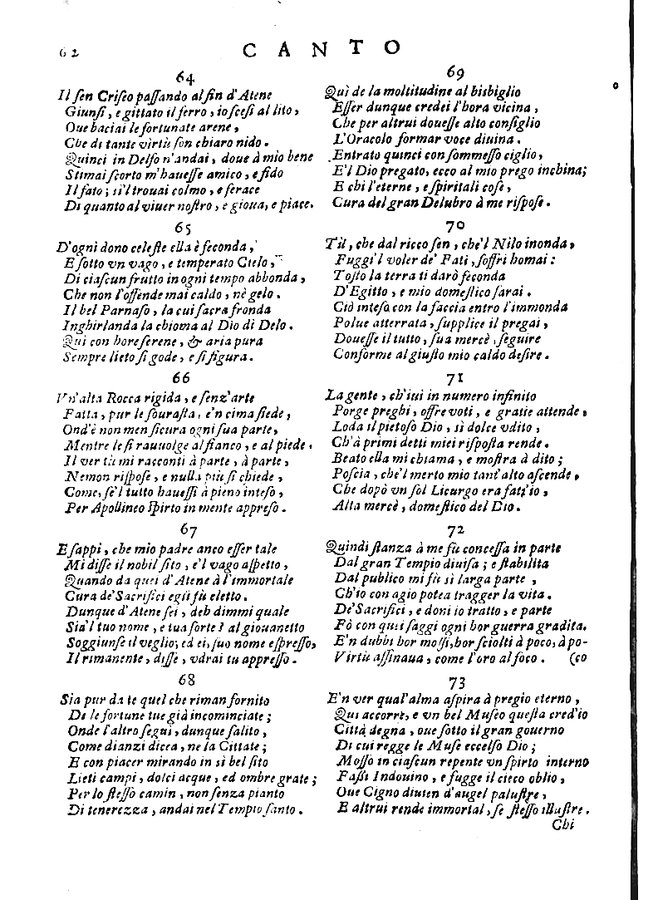 62
CANTO
64
Il sen Criseo passando al fin d'Atene
Giunsi, e gittato il ferro, io scesi al lito,
Oue baciai le fortunate arene,
Che di tante virtù son chiaro nido.
Quinci in Delfo n'andai, doue à mio bene
Stimai scorto m'hauesse amico, e fido
Il fato; sì'l trouai colmo, e ferace
Di quanto al viuer nostro, e gioua, e piace.
65
D'ogni dono celeste ella è feconda,
E sotto vn vago, e temperato Cielo,
Di ciascun frutto in ogni tempo abbonda,
Che non l'offende mai caldo, nè gelo.
Il bel Parnaso, la cui sacra fronda
Inghirlanda la chioma al Dio di Delo.
Qui con hore serene, & aria pura
Sempre lieto si gode, e si figura.
66
Vn'alta Rocca rigida, e senz'arte
Fatta, pur le sourasta, e'n cima siede,
Ond'è non men sicura ogni sua parte,
Mentre le si rauuolge al fianco, e al piede.
Il ver tù mi racconti à parte, à parte,
Nemon rispose, e nulla più si chiede,
Come, se'l tutto hauessi à pieno inteso,
Per Apollineo spirto in mente appreso.
67
E sappi, che mio padre anco esser tale
Mi disse il nobil sito, e'l vago aspetto,
Quando da quei d'Atene à l'immortale
Cura de' Sacrifici egli fù eletto.
Dunque d'Atene sei, deh dimmi quale
Sia'l tuo nome, e tua sorte? al giouanetto
Soggiunse il veglio; ed ei, suo nome espresso,
Il rimanente, disse, vdrai tu appresso.
68
Sia pur da te quel che riman fornito
De le fortune tue già incominciate;
Onde l'altro seguì, dunque salito,
Come dianzi dicea, ne la Cittate;
E con piacer mirando in sì bel sito
Lieti campi, dolci acque, ed ombre grate;
Per lo stesso camin, non senza pianto
Di tenerezza, andai nel Tempio santo.
69
Quì de la moltitudine al bisbiglio
Esser dunque credei l'hora vicina,
Che per altrui douesse alto consiglio
L'Oracolo formar voce diuina.
Entrato quinci con sommesso ciglio,
E'l Dio pregato, ecco al mio prego inchina;
E chi l'eterne, e spiritali cose,
Cura del gran Delubro à me rispose.
70
Tù, che dal ricco sen, che'l Nilo inonda,
Fuggi'l voler de' Fati, soffri homai:
Tosto la terra ti darò feconda
D'Egitto, e mio domestico sarai.
Ciò intesa con la faccia entro l'immonda
Polue atterrata, supplice il pregai,
Douesse il tutto, sua mercè, seguire
Conforme al giusto mio caldo desire.
71
La gente, ch'iui in numero infinito
Porge preghi, offre voti, e gratie attende,
Loda il pietoso Dio, sì dolce vdito,
Ch'à primi detti miei risposta rende.
Beato ella mi chiama, e mostra à dito;
Poscia, che'l merto mio tant'alto ascende,
Che dopò vn sol Licurgo era fatt'io,
Alta mercè, domestico del Dio.
72
Quindi stanza à me fù concessa in parte
Dal gran Tempio diuisa; e stabilita
Dal publico mi fù sì larga parte,
Ch'io con agio potea tragger la vita.
De' Sacrifici, e doni io tratto, e parte
Fò con quei saggi ogni hor guerra gradita.
E'n dubbi hor mossi, hor sciolti à poco, à po-
Virtù affinaua, come l'oro al foco. (co
73
E'n ver qual'alma aspira à pregio eterno,
Qui accorre, e vn bel Museo questa cred'io
Città degna, oue sotto il gran gouerno
Di cui regge le Muse eccelso Dio;
Mosso in ciascun repente vn spirto interno
Fassi Indouino, e fugge il cieco oblio,
Oue Cigno diuien d'augel palustre,
E altrui rende immortal, se stesso illustre.
Chi